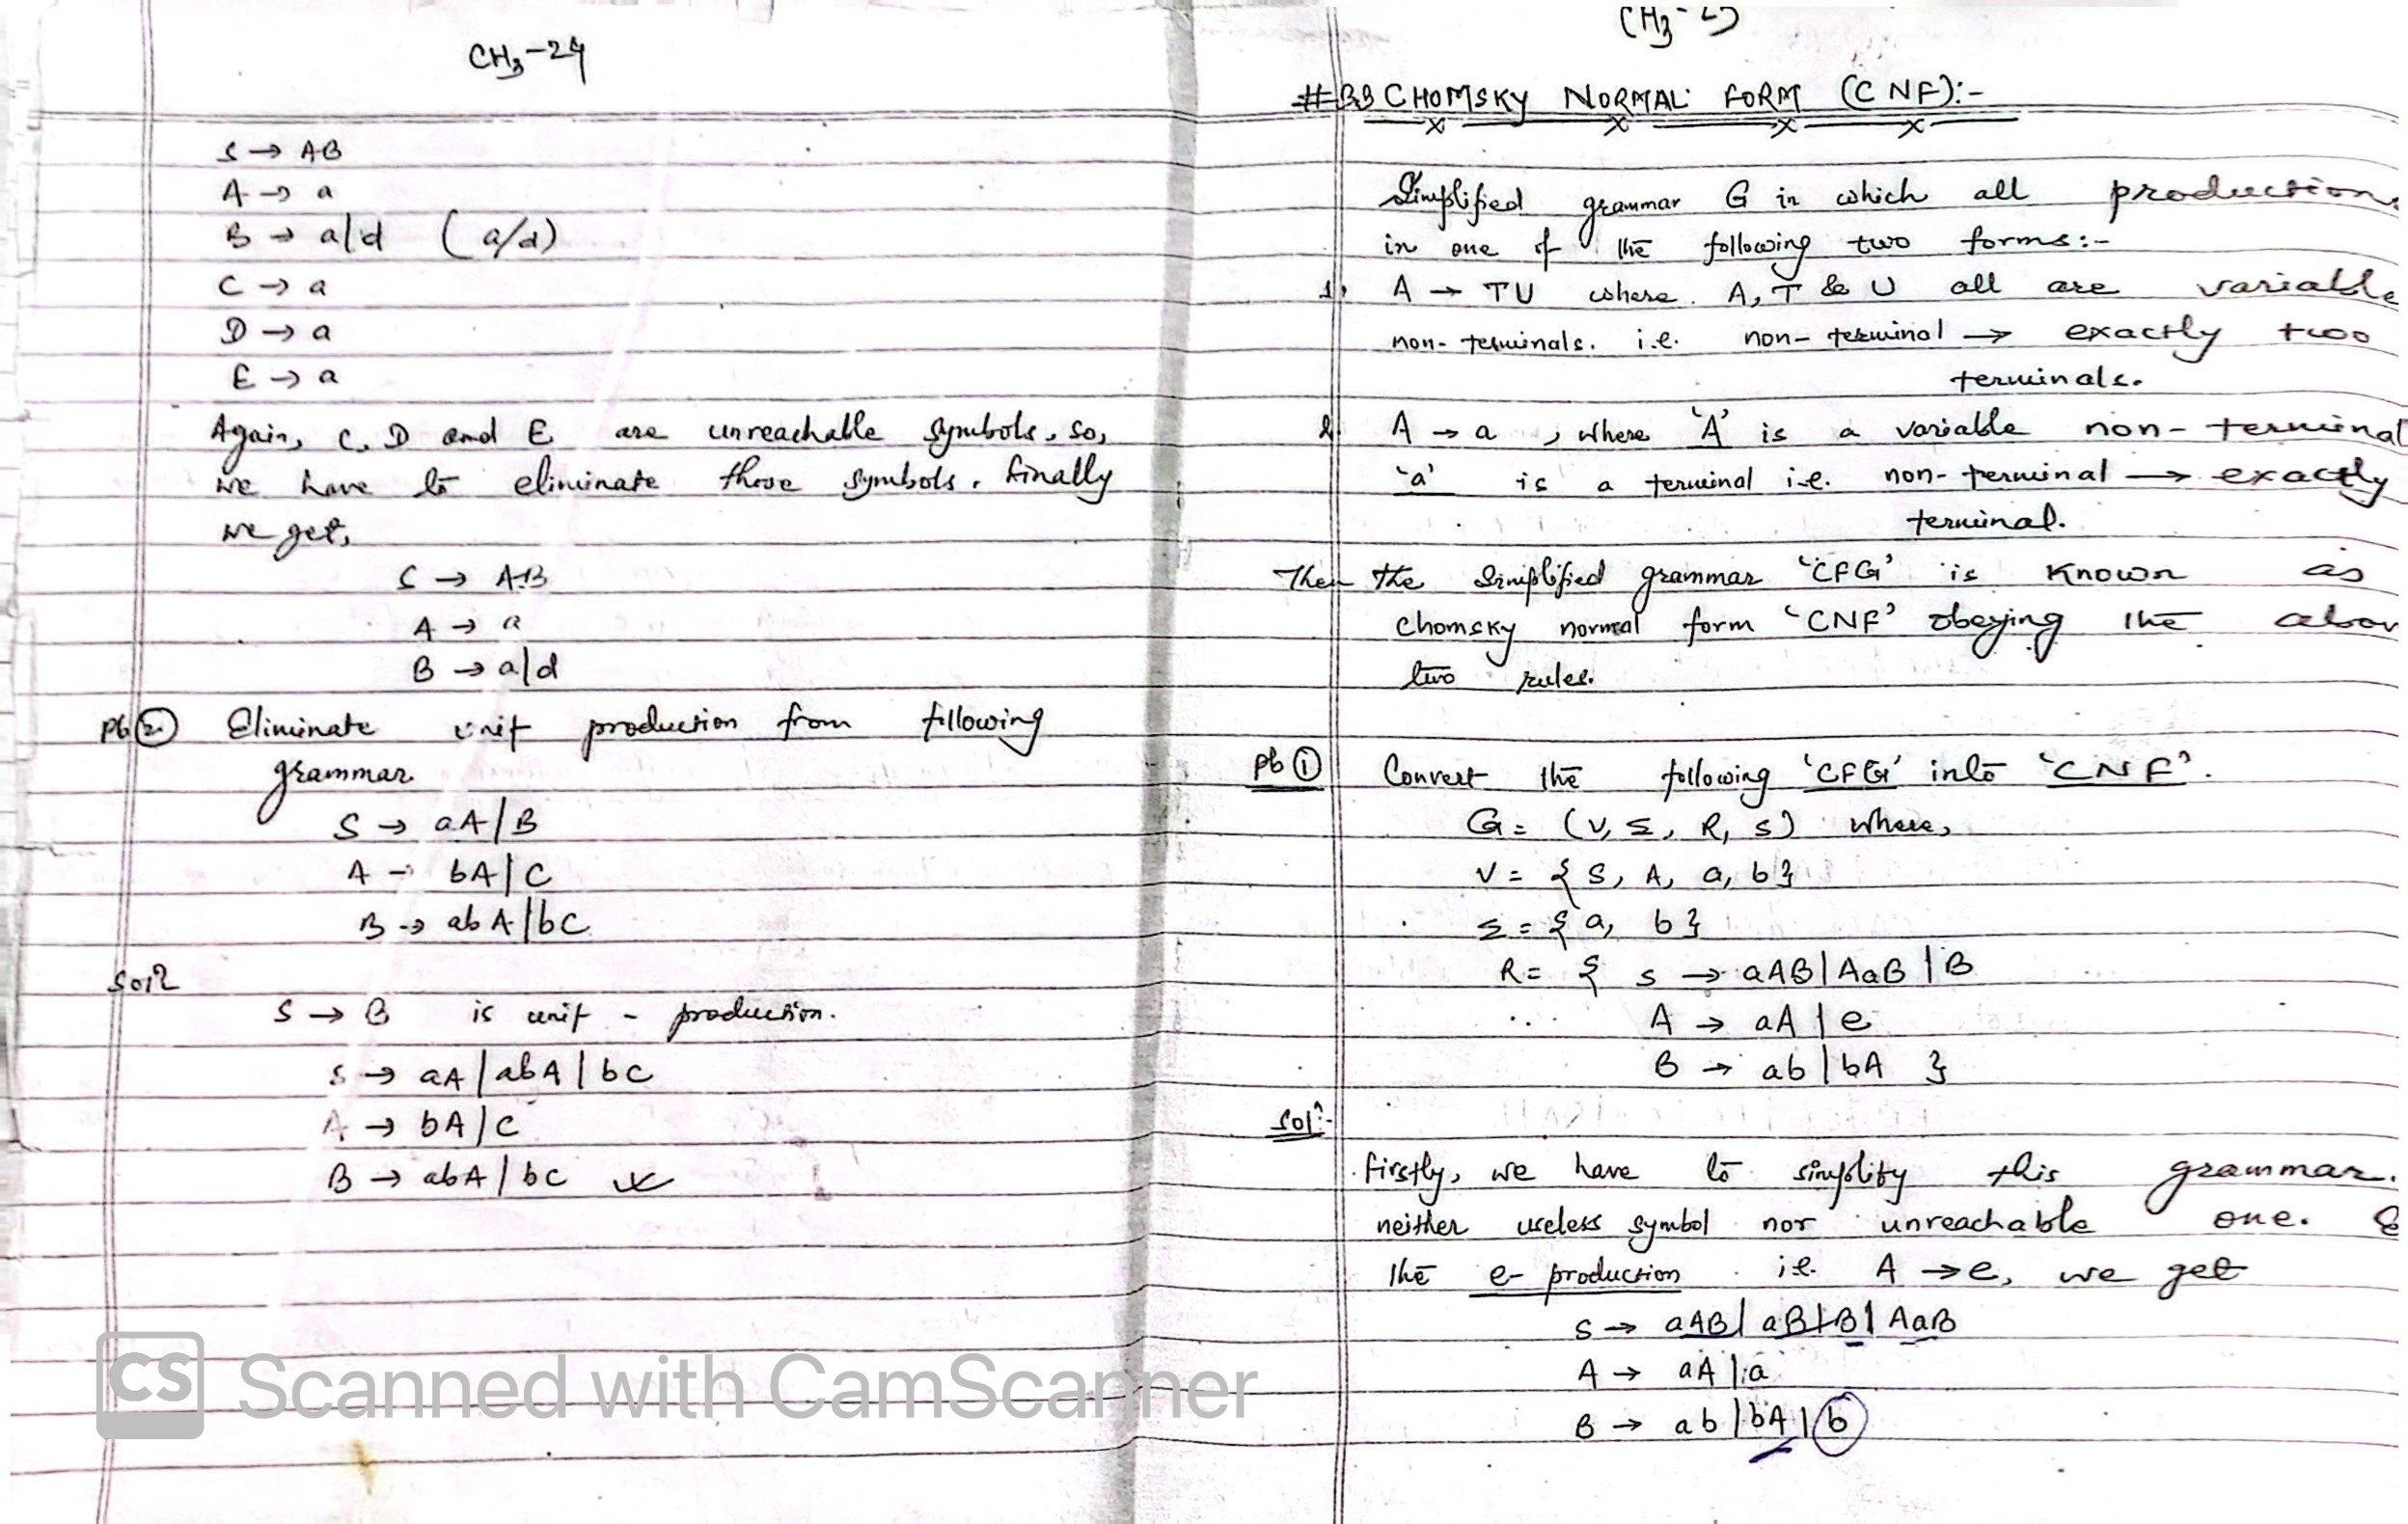 CH3-24
S → AB
A → a
B → a|d ( a/d)
C → a
D → a
E → a
Again, C, D and E are unreachable symbols, so,
we have to eliminate those symbols. finally
we get,
S → AB
A → a
B → a|d
Pb ② Eliminate unit production from following
grammar
S → aA|B
A → bA|C
B → abA|bC
Sol?
S → B is unit - production.
S → aA|abA|bC
A → bA|C
B → abA|bC
CS Scanned with CamScanner
# CHOMSKY NORMAL FORM (CNF):-
Simplified grammar G in which all production
in one of the following two forms:-
1. A → TU where A, T & U all are variable
non-terminals. i.e. non-terminal → exactly two
terminals.
2. A → a , where 'A' is a variable non-terminal
'a' is a terminal i.e. non-terminal → exactly
terminal.
Then the simplified grammar 'CFG' is known as
chomsky normal form 'CNF' obeying the abov
two rules.
Pb ① Convert the following 'CFG' into 'CNF'.
G = (V, Σ, R, S) where,
V = { S, A, a, b}
Σ = { a, b }
R = { S → aAB|AaB|B
A → aA|e
B → ab|bA }
Soln:-
firstly, we have to simplify this grammar.
neither useless symbol nor unreachable one. &
the e- production i.e. A → e, we get
S → aAB|aB|B|AaB
A → aA|a
B → ab|bA|b